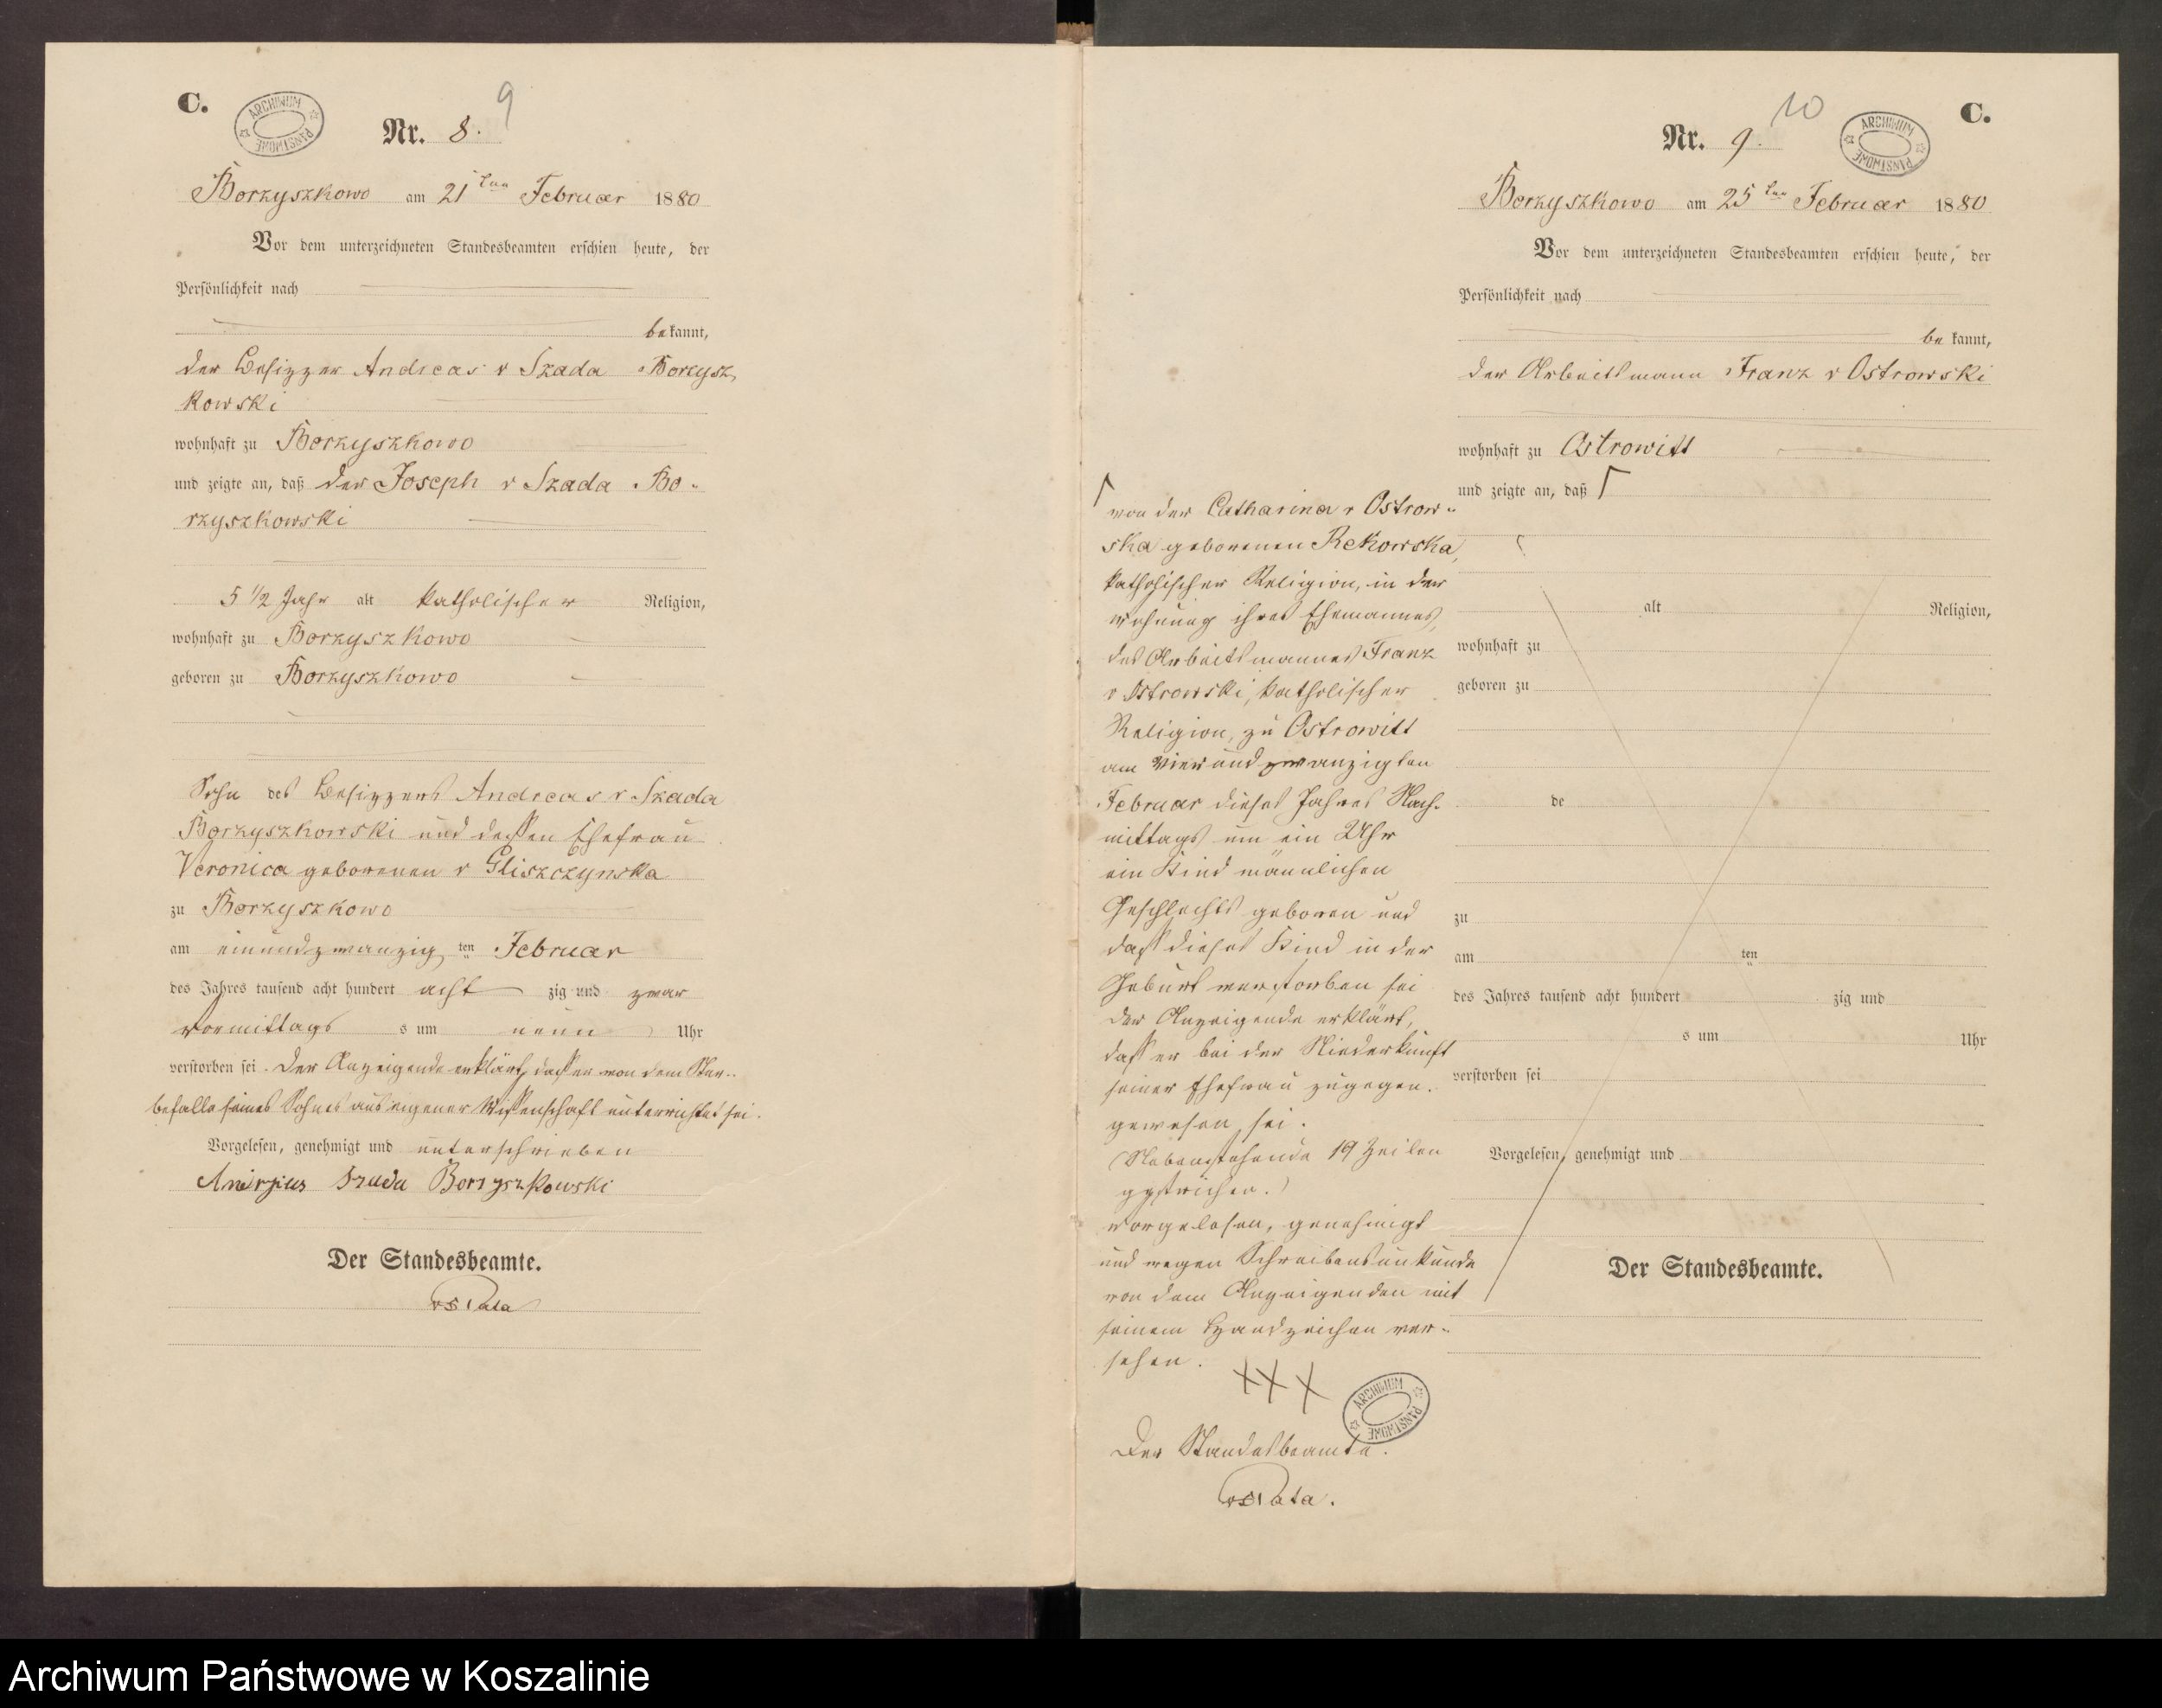 C.
ARCHIWUM PAŃSTWOWE
9
Nr. 8.
Borzyszkowo am 21ten Februar 1880
Vor dem unterzeichneten Standesbeamten erschien heute, der
Persönlichkeit nach
bekannt,
der Besizzer Andreas v Szada Borzysz-
kowski
wohnhaft zu Borzyszkowo
und zeigte an, daß der Joseph v Szada Bo-
rzyszkowski
5 1/2 Jahr alt katholischer Religion,
wohnhaft zu Borzyszkowo
geboren zu Borzyszkowo
Sohn des Besizzers Andreas v Szada
Borzyszkowski und dessen Ehefrau
Veronica geborenen v Gliszczynska
zu Borzyszkowo
am einundzwanzig ten Februar
des Jahres tausend acht hundert acht zig und zwar
vormittags s um neun Uhr
verstorben sei. Der Anzeigende erklärt, dass er von dem Ster-
befalle seines Sohnes aus eigener Wissenschaft unterrichtet sei.
Vorgelesen, genehmigt und unterschrieben
Borzyszkowski
Der Standesbeamte.
C.
10
ARCHIWUM PAŃSTWOWE
Nr. 9.
Borzyszkowo am 25ten Februar 1880
Vor dem unterzeichneten Standesbeamten erschien heute, der
Persönlichkeit nach
be kannt,
der Arbeitsmann Franz v Ostrowski
wohnhaft zu Ostrowitt
und zeigte an, daß
alt Religion,
wohnhaft zu
geboren zu
de
zu
am ten
des Jahres tausend acht hundert zig und
s um Uhr
verstorben sei
Vorgelesen, genehmigt und
Der Standesbeamte.
von der Catharina v Ostrow-
ska geborenen Rekowska,
katholischer Religion, in der
wohnung ihres Ehemannes,
des Arbeitsmannes Franz
v Ostrowski, katholischer
Religion, zu Ostrowitt
am vierundzwanzigten
Februar dieses Jahres Nach-
mittags um ein Uhr
ein Kind männlichen
Geschlechts geboren und
dass dieses Kind in der
Geburt verstorben sei
der Anzeigende erklärt,
dass er bei der Niederkunft
seiner Ehefrau zugegen
gewesen sei.
(Nebenstehende 19 Zeilen
gestrichen.)
vorgelesen, genehmigt
und wegen Schreibensunkunde
von dem Anzeigenden mit
seinem Handzeichen ver-
sehen.
XXX
ARCHIWUM PAŃSTWOWE
Der Standesbeamte.
Archiwum Państwowe w Koszalinie